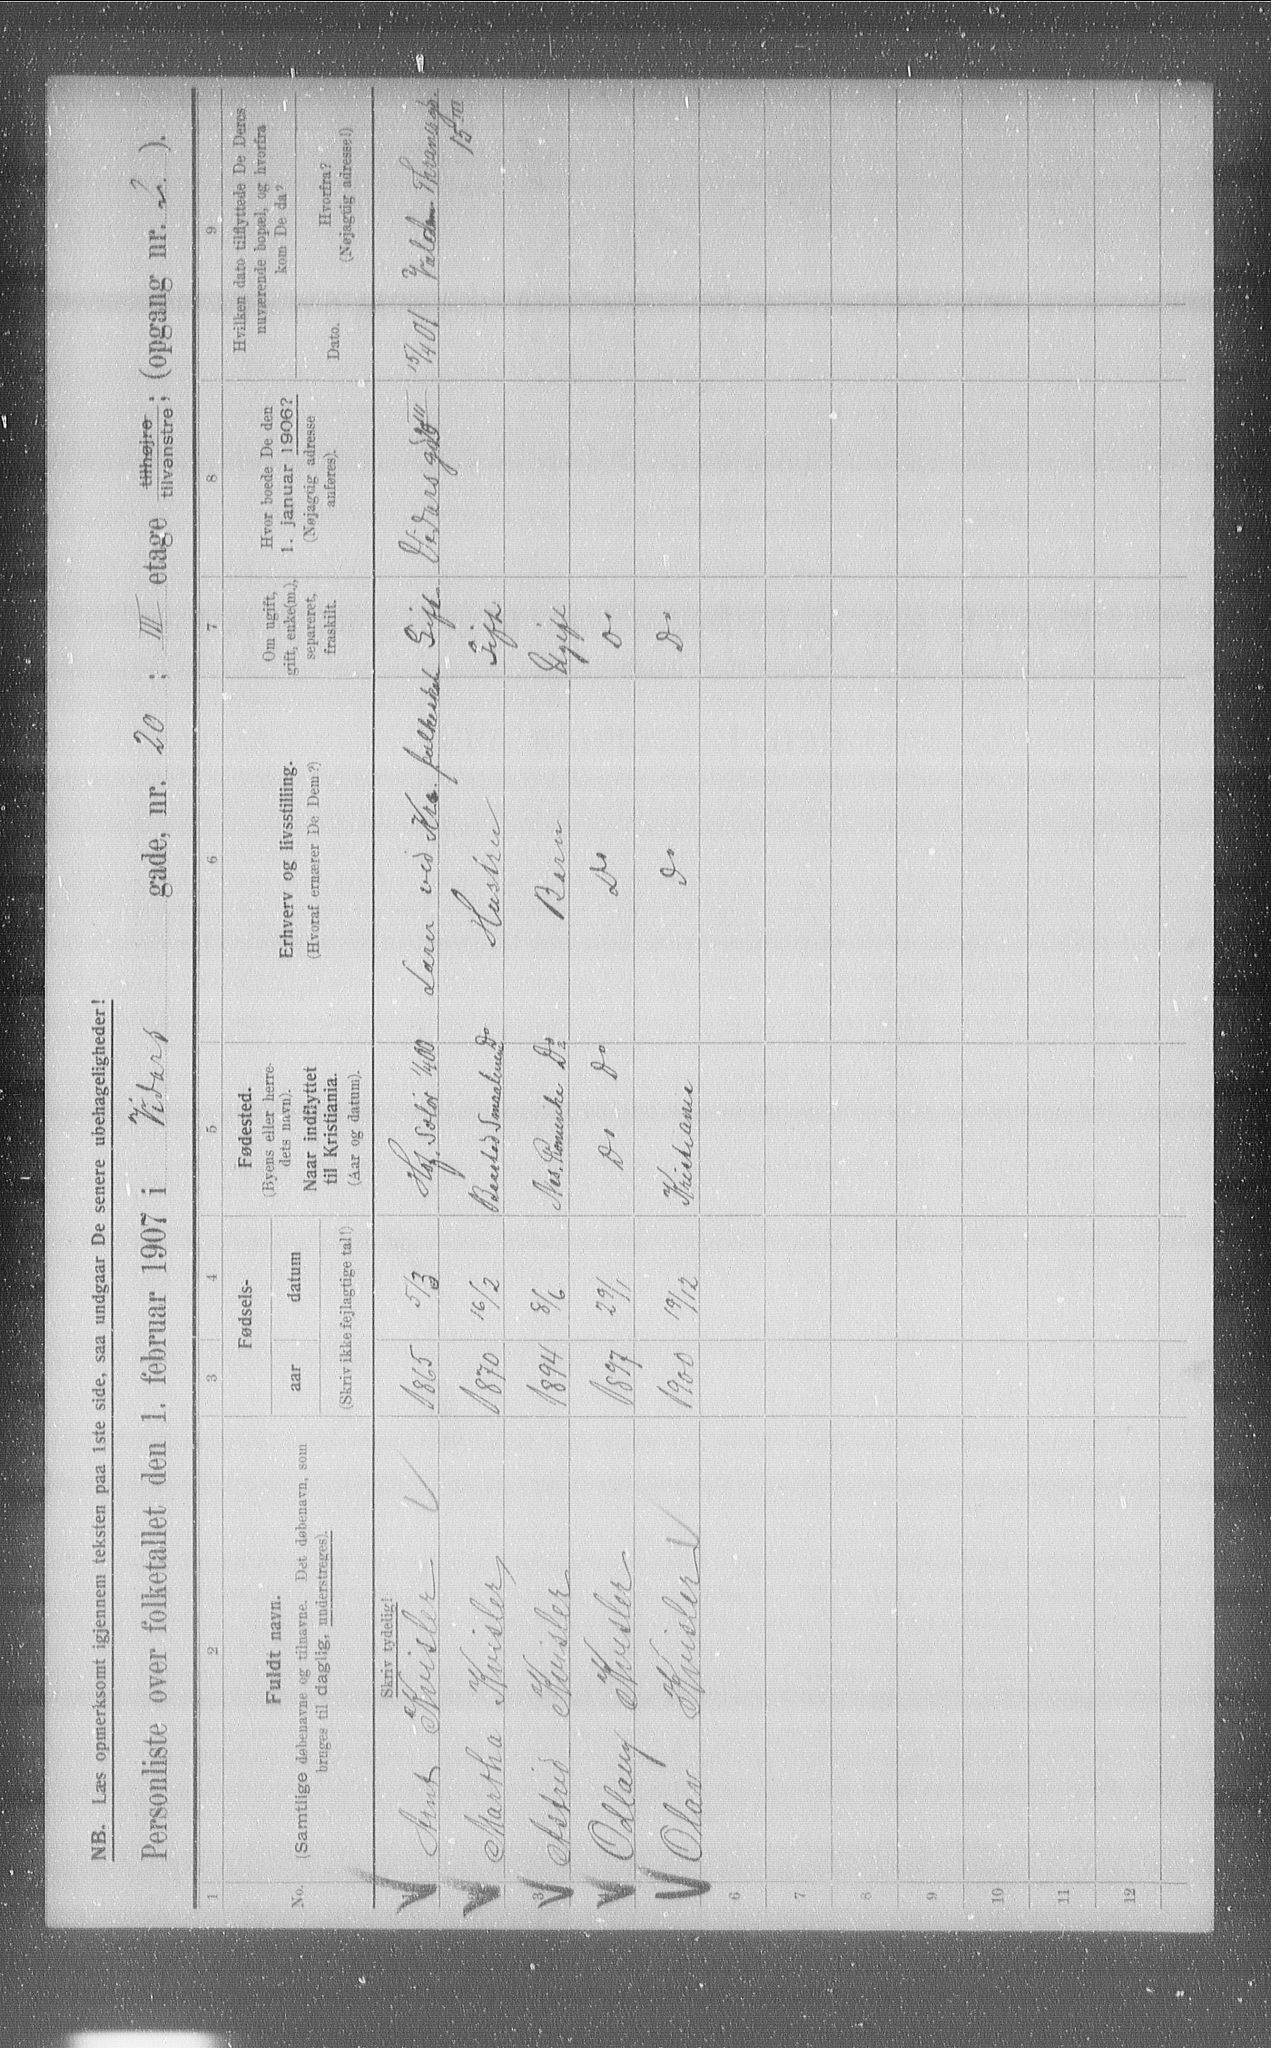 NB. Læs opmerksomt igjennem teksten paa 1ste side, saa undgaar De senere ubehageligheder!
Personliste over folketallet den 1. februar 1907 i Vidars gade, nr. 20 ; III etage tilhøjre tilvenstre ; (opgang nr. 2. ).
1 2 3 4 5 6 7 8 9
No.
Fuldt navn.
(Samtlige døbenavne og tilnavne. Det døbenavn, som
bruges til daglig, understreges).
Fødsels-
aar datum
(Skriv ikke fejlagtige tal!)
Fødested.
(Byens eller herre-
dets navn).
Naar indflyttet
til Kristiania.
(Aar og datum).
Erhverv og livsstilling.
(Hvoraf ernærer De Dem?)
Om ugift,
gift, enke(m.),
separeret,
fraskilt.
Hvor boede De den
1. januar 1906?
(Nøjagtig adresse
anføres).
Hvilken dato tilflyttede De Deres
nuværende bopæl, og hvorfra
kom De da?
Dato.
Hvorfra?
(Nøjagtig adresse!)
Skriv tydelig!
1 Arnt Kvisler 1865 5/3 Hof, Solør 1/4 00 Lærer ved Kra. folkeskol Gift Vidars gd 20 III 15/4 01 Thranesgd. 15 III
2 Martha Kvisler 1870 16/2 Smaalenene Do Hustru Gift
3 Astrid Kvisler 1894 8/6 Nes, Romerike Do Barn Ugift
4 Odlaug Kvisler 1897 29/1 Do Do Do Do
5 Olav Kvisler 1900 19/12 Kristiania Do Do
6
7
8
9
10
11
12